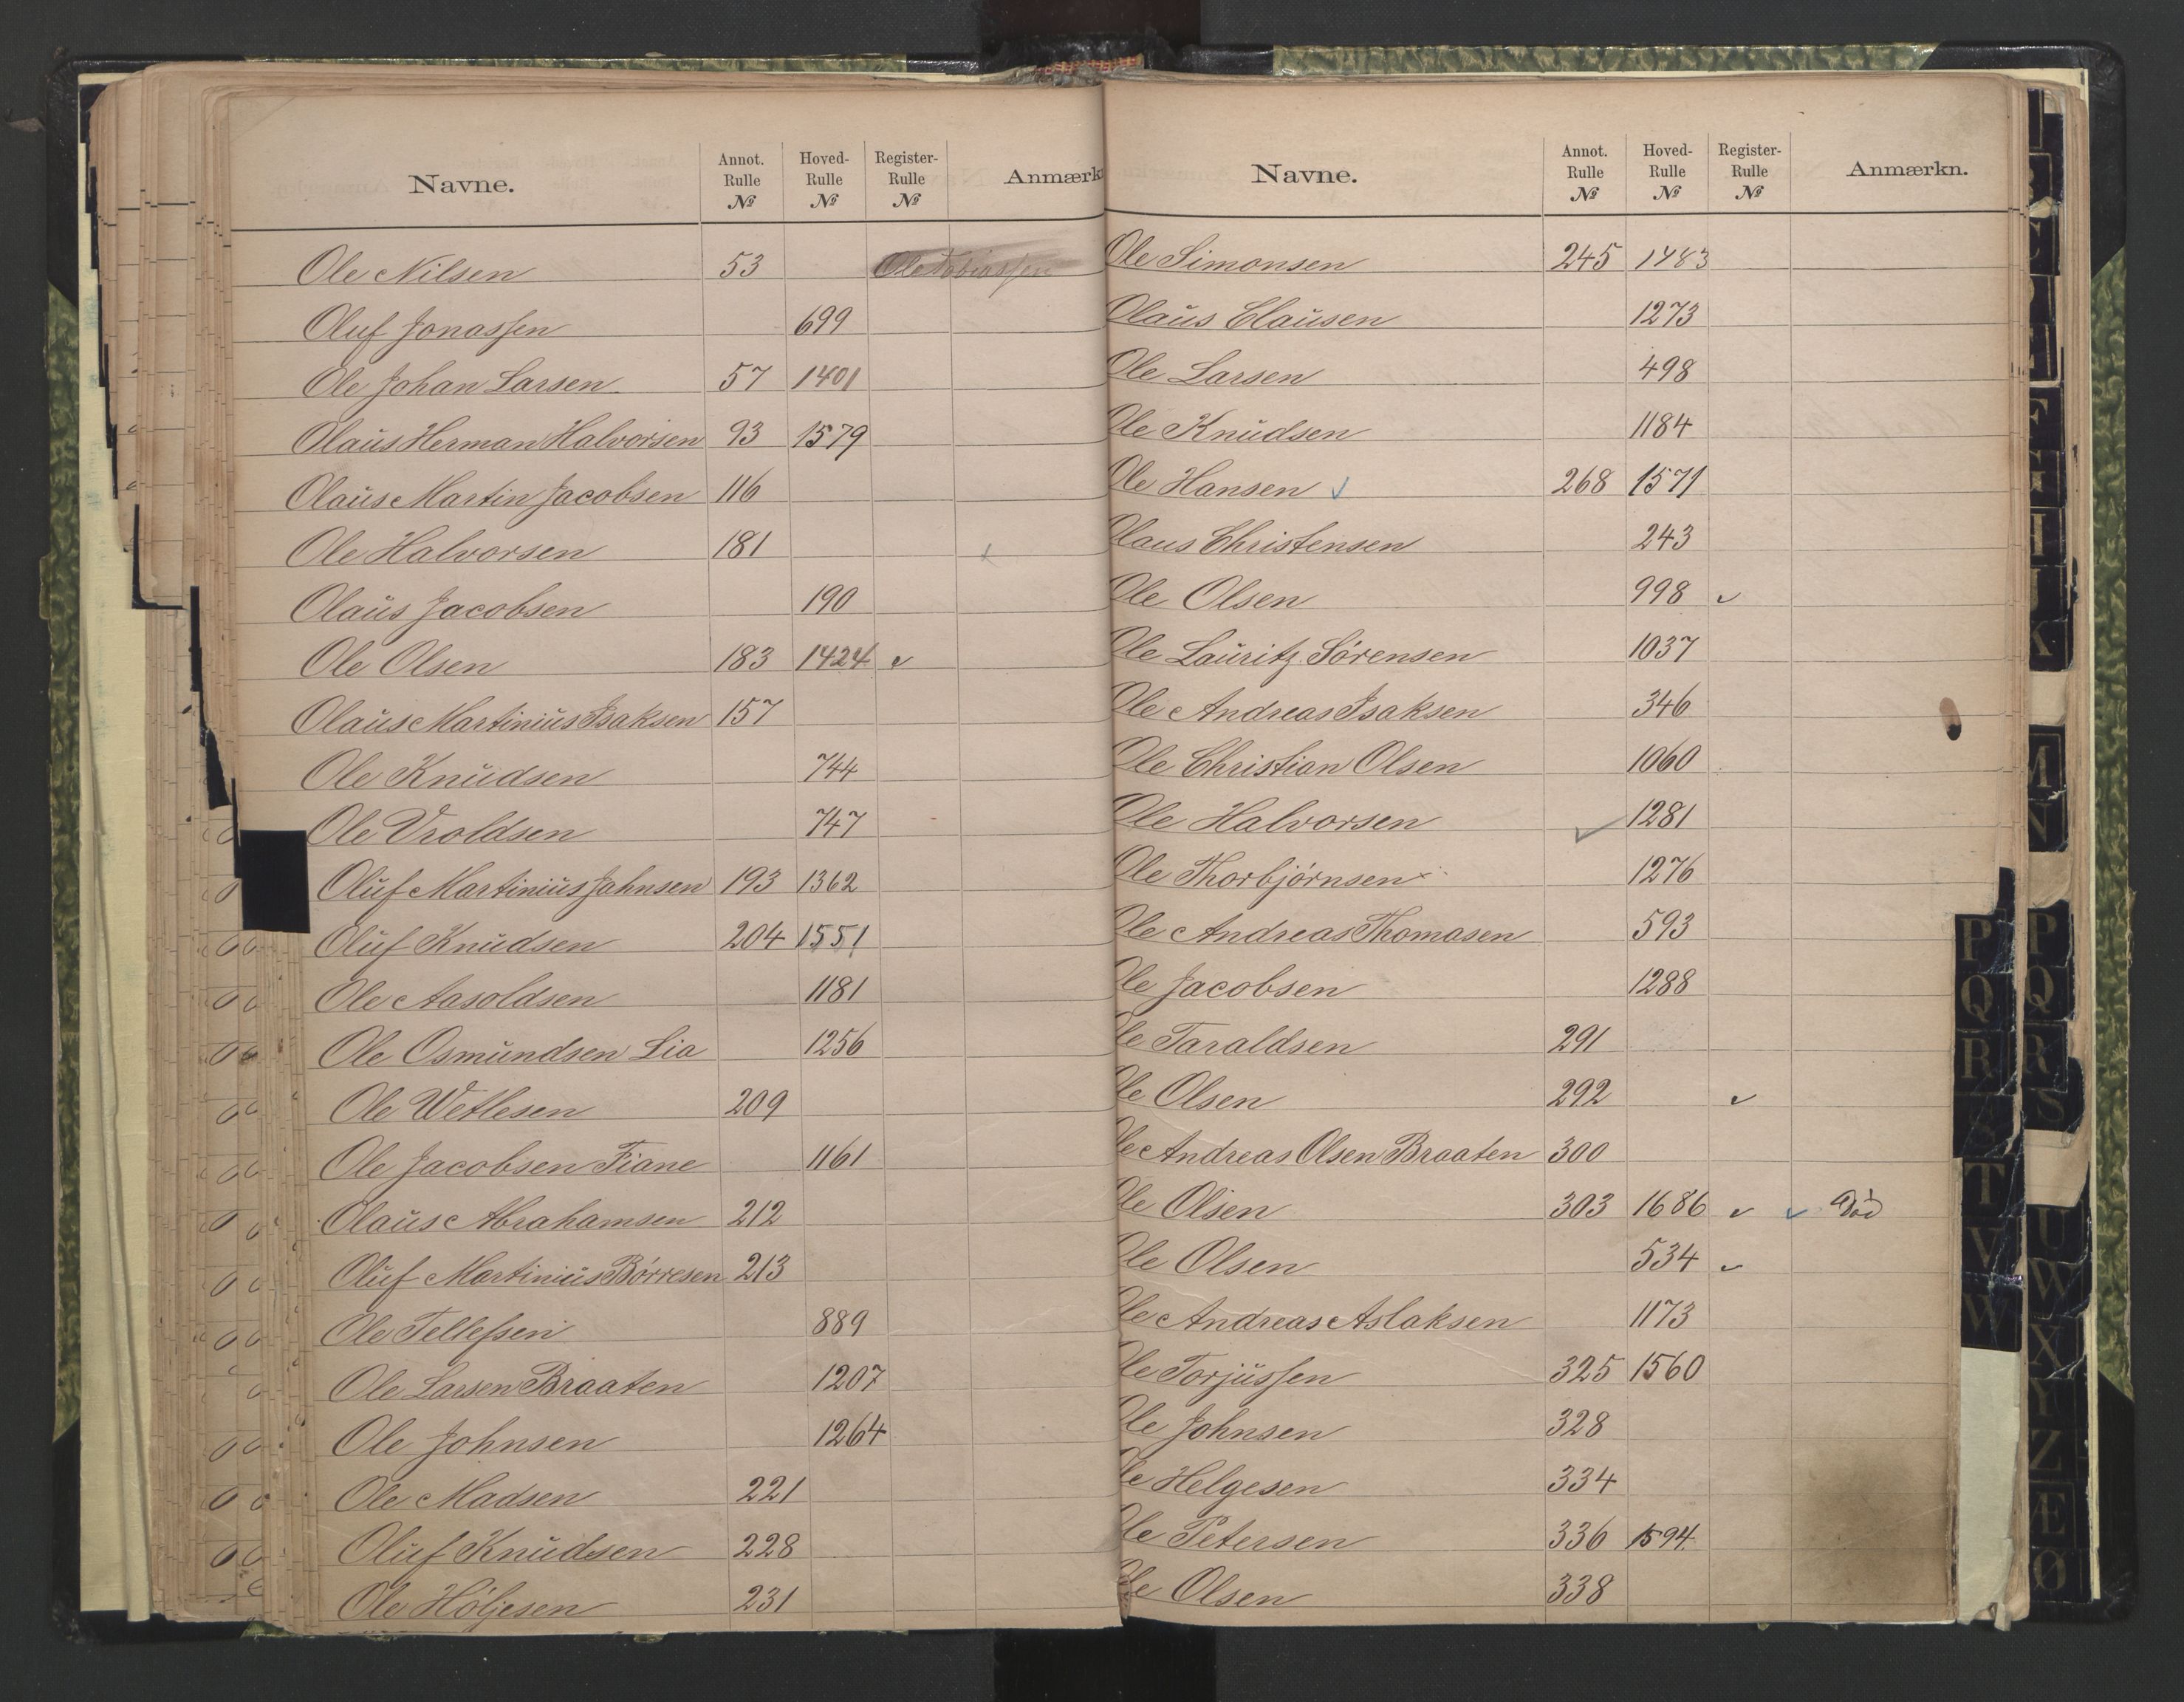 Navne. Annot. Rulle № Hoved- Rulle № Register- Rulle № Anmærk
Ole Nilsen 53 Ole Tobiassen
Oluf Jonassen 699
Ole Johan Larsen 57 1401
Olaüs Herman Halvorsen 93 1579
Olaüs Martin Jacobsen 116
Ole Halvorsen 181 x
Olaüs Jacobsen 190
Ole Olsen 183 1424 ✓
Olaüs Martiniüs Isaksen 157
Ole Knüdsen 744
Ole Vroldsen 747
Olüf Martiniüs Jahnsen 193 1362
Olüf Knüdsen 204 1551
Ole Aasoldsen 1181
Ole Osmündsen Lia 1256
Ole Wetlesen 209
Ole Jacobsen Fiane 1161
Olaüs Abrahamsen 212
Olüf Martiniüs Börresen 213
Ole Tellefsen 889
Ole Larsen Braaten 1207
Ole Johnsen 1264
Ole Madsen 221
Olüf Knüdsen 228
Ole Höljesen 231
Navne. Annot. Rulle № Hoved- Rulle № Register- Rulle № Anmærkn.
Ole Simonsen 245 1483
Olaüs Claüsen 1273
Ole Larsen 498
Ole Knüdsen 1184
Ole Hansen ✓ 268 1571
Olaus Christensen 243
Ole Olsen 998 ✓
Ole Laüritz Sörensen 1037
Ole Andreas Isaksen 346
Ole Christian Olsen 1060
Ole Halvorsen ✓ 1281
Ole Thorbjörnsen x 1276
Ole Andreas Thomasen 593
Ole Jacobsen 1288
Ole Taraldsen 291
Ole Olsen 292 ✓
Ole Andreas Olsen Braaten 300
Ole Olsen 303 1686 ✓ ✓ Död
Ole Olsen 534 ✓
Ole Andreas Aslaksen 1173
Ole Torjüssen 325 1560
Ole Johnsen 328
Ole Helgesen 334
Ole Petersen 336 1594.
Ole Olsen 338
P
Q
R
S
T
V
W
C
E
F
G
H
I
K
M
N
P
Q
R
S
U
W
X
Y
Z
Æ
Ø